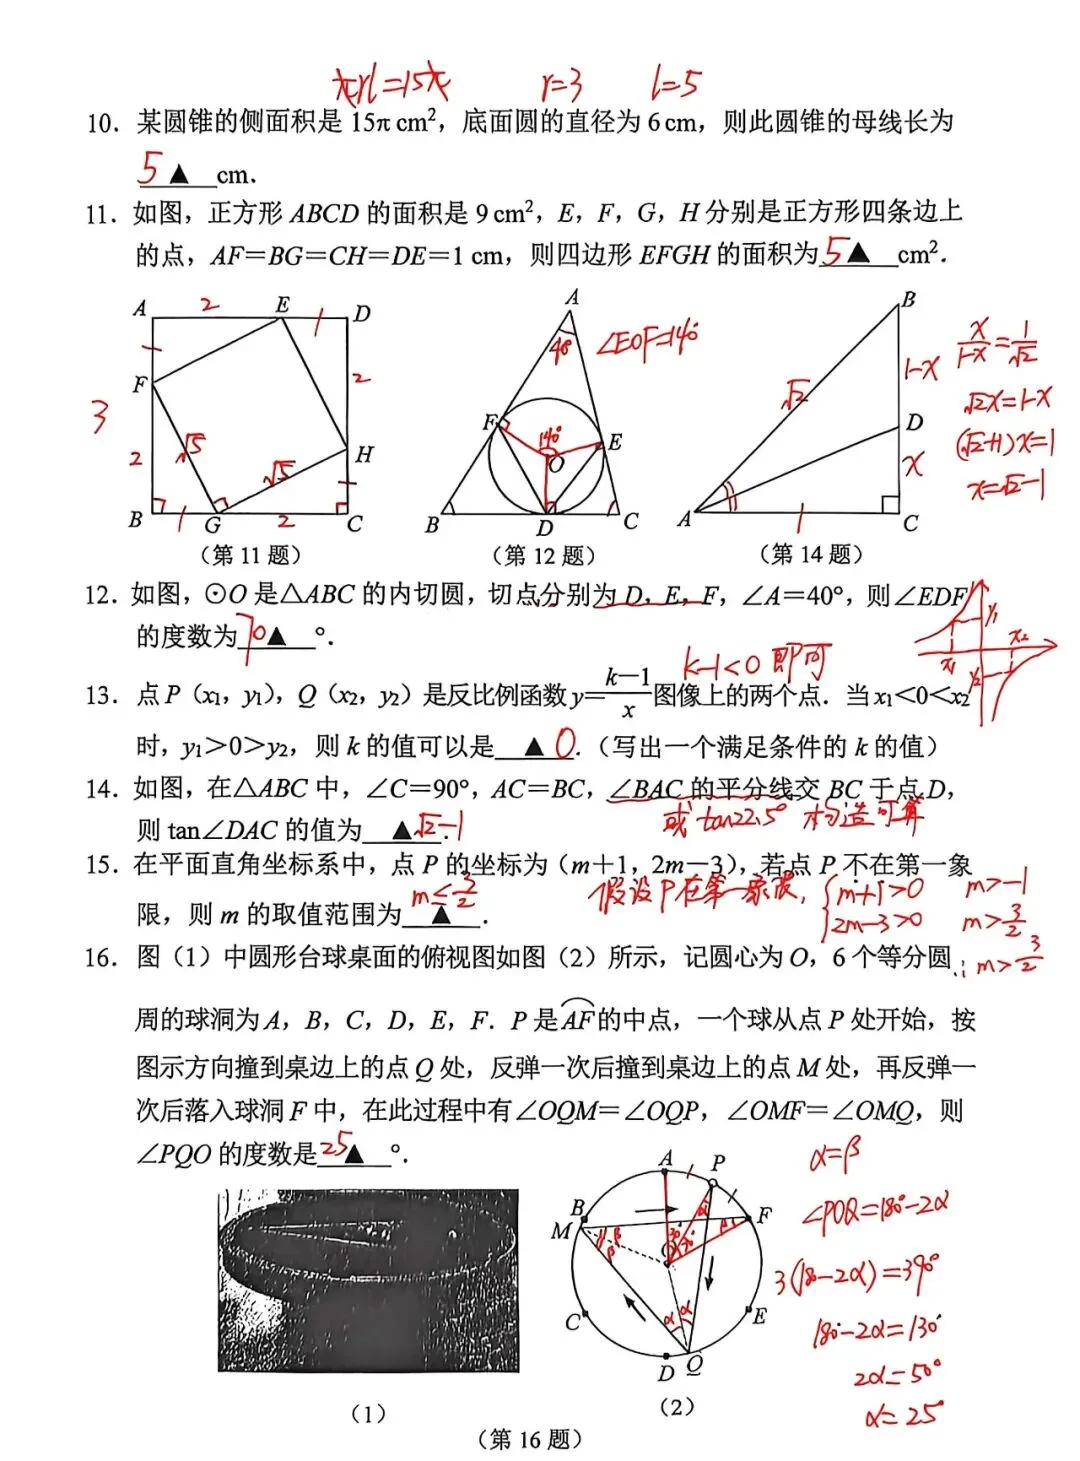 πrl=15π r=3 l=5
10. 某圆锥的侧面积是 15π cm²，底面圆的直径为 6 cm，则此圆锥的母线长为
5 ▲ cm.
11. 如图，正方形 ABCD 的面积是 9 cm²，E，F，G，H 分别是正方形四条边上
的点，AF＝BG＝CH＝DE＝1 cm，则四边形 EFGH 的面积为 5▲ cm².
A 2 E 1 D
F 2
3 2 √5 √5 H
B 1 G 2 C
（第 11 题）
A
40° ∠EOF=140°
F 140° E
O
B D C
（第 12 题）
B
√2 1-x
D
x
A 1 C
（第 14 题）
x/(1-x)=1/√2
√2x=1-x
(√2+1)x=1
x=√2-1
12. 如图，⊙O 是△ABC 的内切圆，切点分别为 D，E，F，∠A＝40°，则∠EDF
的度数为 70▲ °.
y₁ x₂
x₁ y₂
k-1<0 即可
13. 点 P（x₁，y₁），Q（x₂，y₂）是反比例函数 y＝(k−1)/x 图像上的两个点．当 x₁＜0＜x₂
时，y₁＞0＞y₂，则 k 的值可以是 ▲ 0.（写出一个满足条件的 k 的值）
14. 如图，在△ABC 中，∠C＝90°，AC＝BC，∠BAC 的平分线交 BC 于点 D，
则 tan∠DAC 的值为 ▲√2-1.
或 tan22.5° 构造可算
15. 在平面直角坐标系中，点 P 的坐标为（m＋1，2m－3），若点 P 不在第一象
限，则 m 的取值范围为 ▲ .
m≤3/2
假设P在第一象限，{m+1>0 m>-1
2m-3>0 m>3/2
∴m>3/2
16. 图（1）中圆形台球桌面的俯视图如图（2）所示，记圆心为 O，6 个等分圆
周的球洞为 A，B，C，D，E，F．P 是 AF 的中点，一个球从点 P 处开始，按
图示方向撞到桌边上的点 Q 处，反弹一次后撞到桌边上的点 M 处，再反弹一
次后落入球洞 F 中，在此过程中有∠OQM＝∠OQP，∠OMF＝∠OMQ，则
∠PQO 的度数是 25▲ °.
A P
B α F
M β β 30° 30° β
O
C α α E
D Q
α=β
∠POQ=180°-2α
3(180-2α)=390°
180°-2α=130°
2α=50°
α=25°
（1）
（2）
（第 16 题）